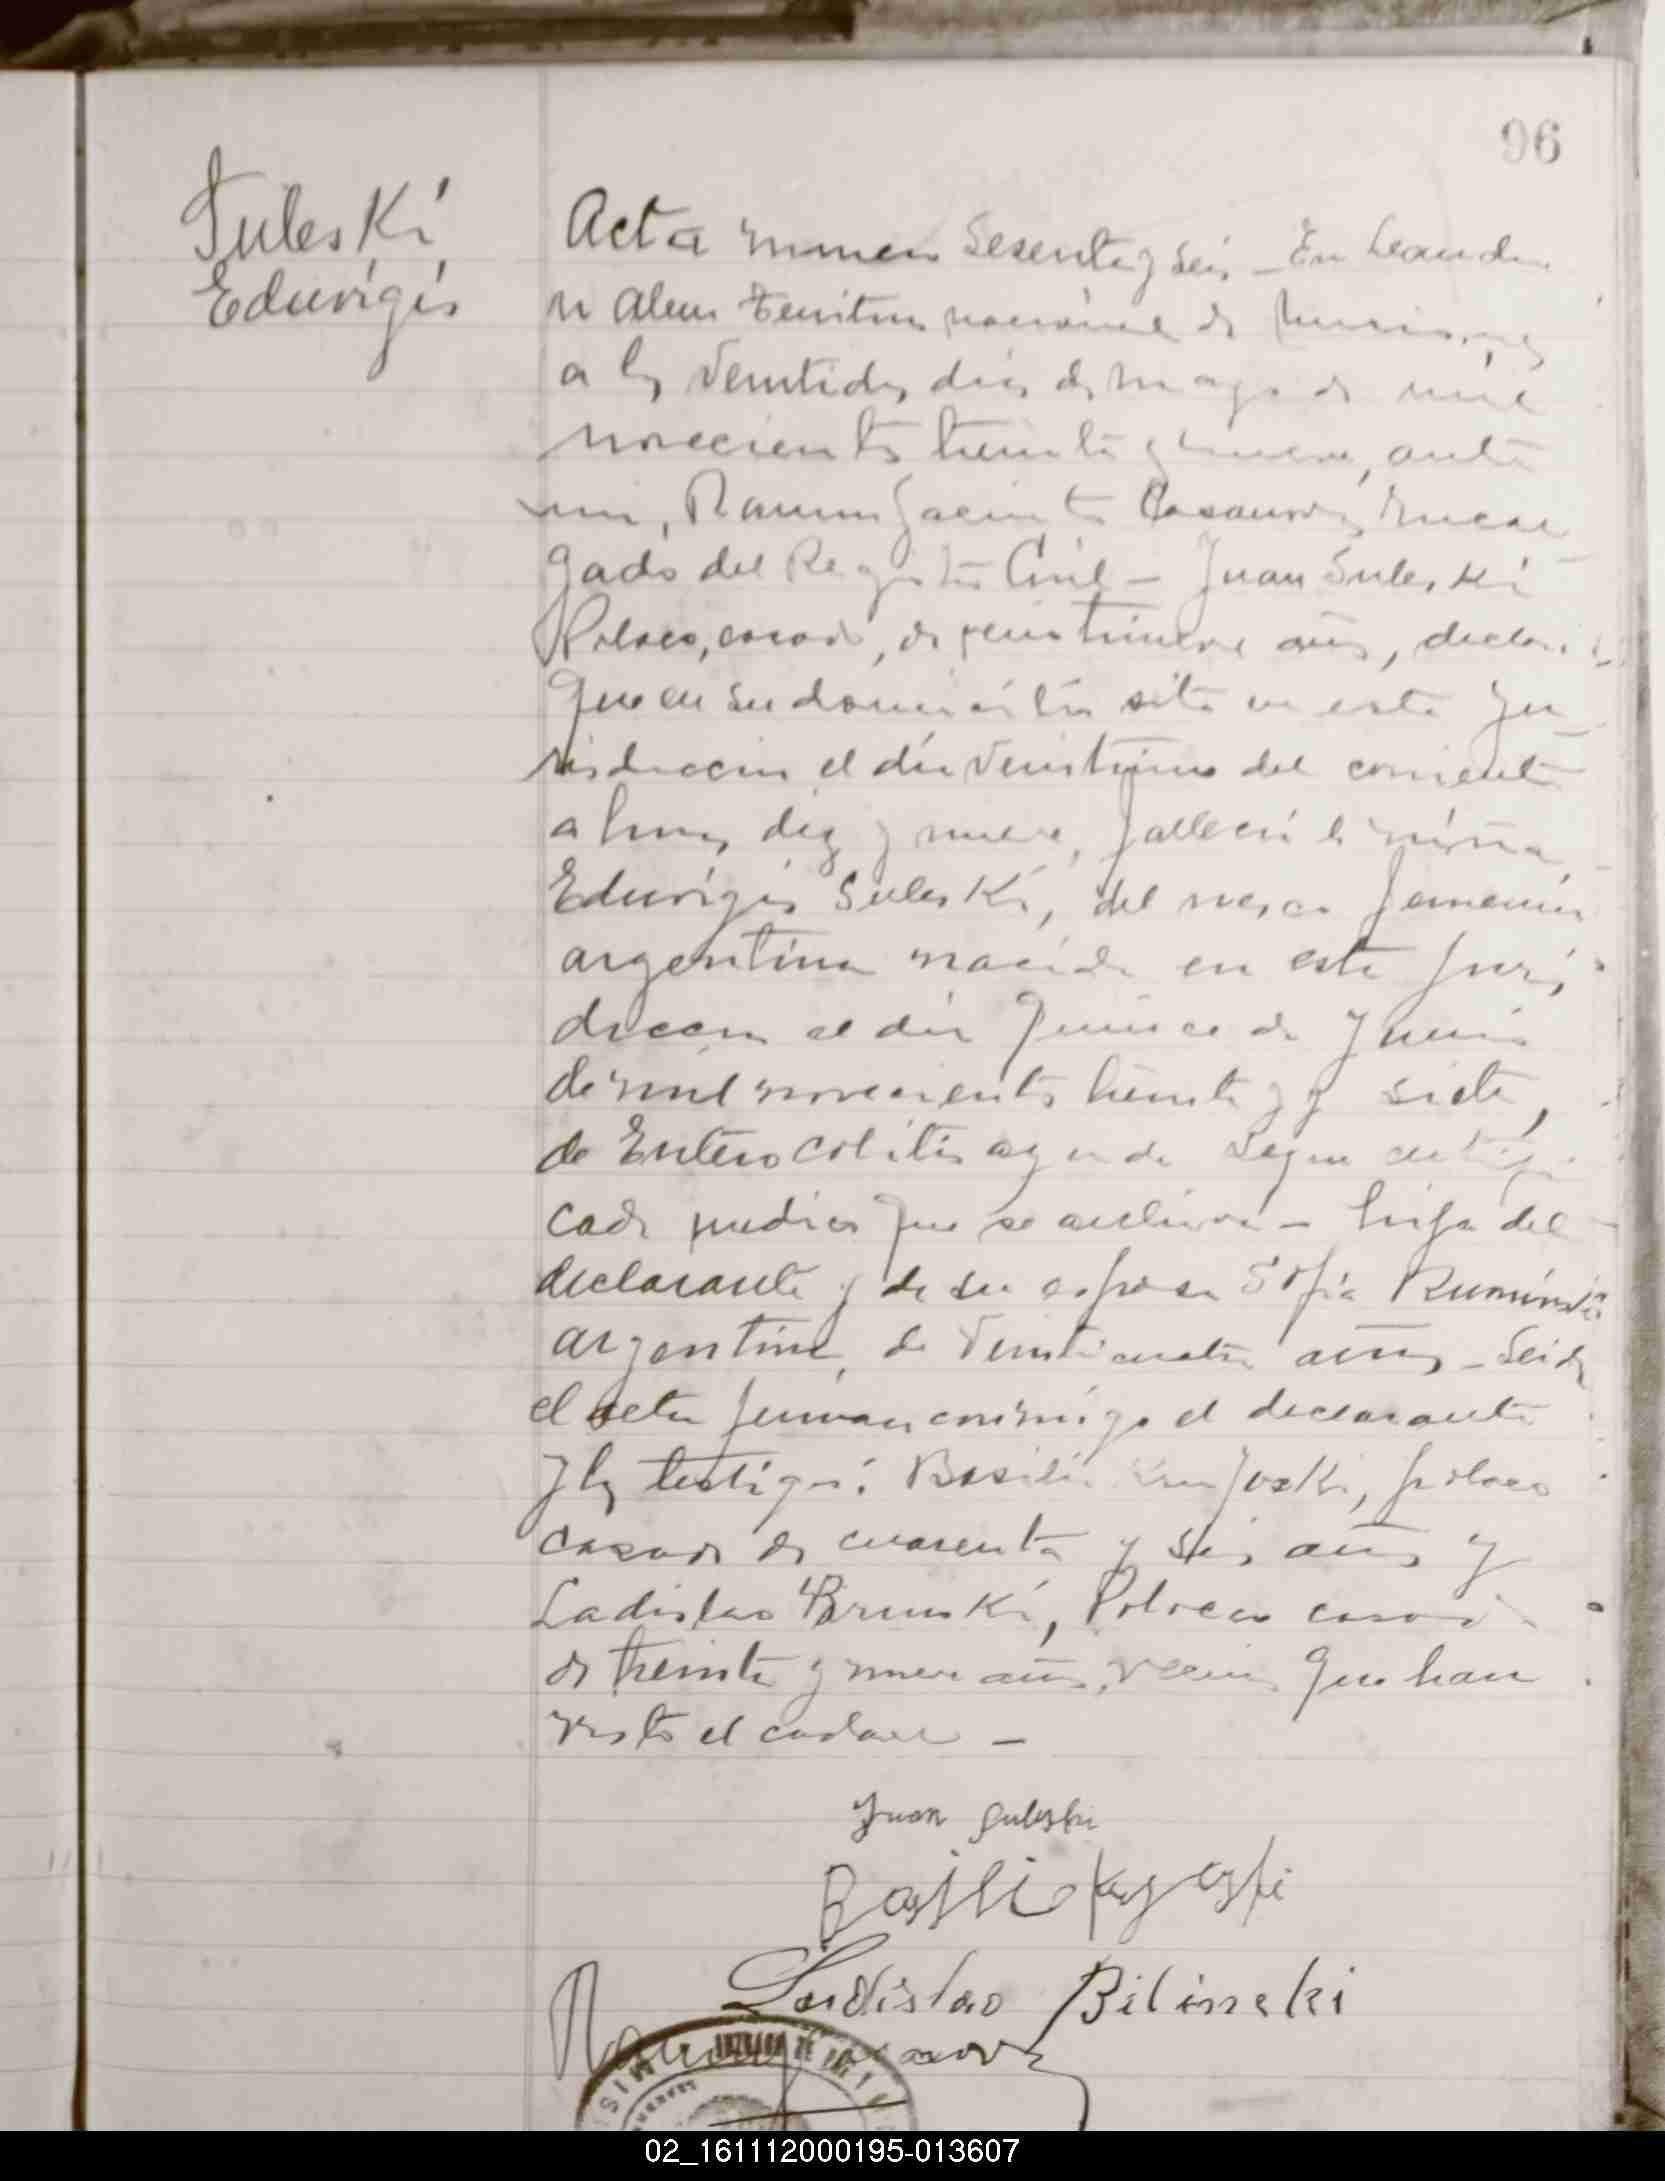 96
Suleski
Eduvigis
Acta numero Sesenta y seis - En Leandro
N Alem Territorio nacional de Misiones
a los Veintidos dias de Mayo de mil
novecientos treinta y nueve, ante
mi, Ramon Jacinto Casanova, Encar
gado del Registro Civil - Juan Suleski
Polaco, casado, de veintinueve años, declaró
Que en su domicilio sito en esta Ju
risdiccion el dia veintiuno del corriente
a horas diez y nueve, falleció la niña
Eduvigis Suleski, del sexo femenino
argentina nacida en esta Juris
diccion el dia Quince de Junio
de mil novecientos treinta y siete,
de Enterocolitis aguda segun certifi
cado medico que se archiva - hija del
declarante y de su esposa Sofia
argentina, de Veinticuatro años - Leida
el acta firman conmigo el declarante
y los testigos: Basilio polaco
casado de cuarenta y seis años y
Ladislao Polaco casado
de treinta y nueve años, vecinos que han
visto el cadaver -
Juan Suleski
Basilio
Ladislao Bilinski
Ramon J Casanova
02_161112000195-013607